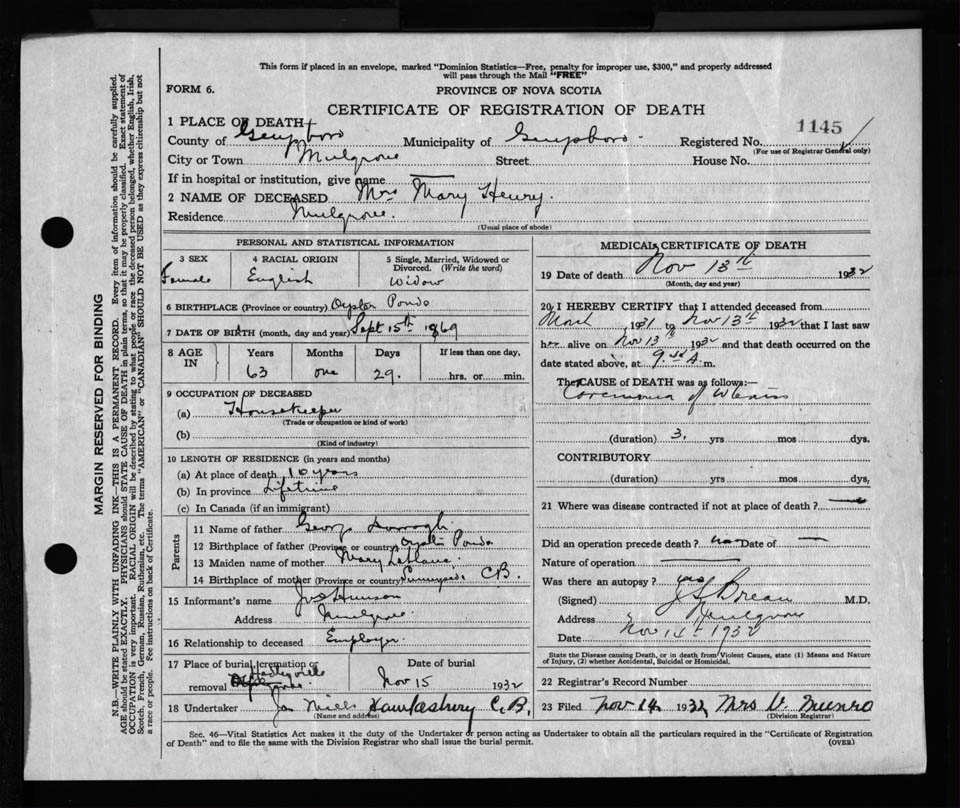 This form if placed in an envelope, marked "Dominion Statistics—Free, penalty for improper use, $300," and properly addressed
will pass through the Mail "FREE"
FORM 6.
PROVINCE OF NOVA SCOTIA
CERTIFICATE OF REGISTRATION OF DEATH
1145
1 PLACE OF DEATH
County of Guysboro Municipality of Guysboro Registered No.
(For use of Registrar General only)
City or Town Mulgrave Street House No.
If in hospital or institution, give name —
2 NAME OF DECEASED Mrs Mary Henry.
Residence Mulgrave.
(Usual place of abode)
PERSONAL AND STATISTICAL INFORMATION
3 SEX 4 RACIAL ORIGIN 5 Single, Married, Widowed or
Divorced. (Write the word)
Female English Widow
6 BIRTHPLACE (Province or country) Oyster Ponds
7 DATE OF BIRTH (month, day and year) Sept 15th 1869
8 AGE IN Years Months Days If less than one day,
63 one 29. hrs. or min.
9 OCCUPATION OF DECEASED
(a) Housekeeper
(Trade or occupation or kind of work)
(b)
(Kind of industry)
10 LENGTH OF RESIDENCE (in years and months)
(a) At place of death 10 years
(b) In province Lifetime
(c) In Canada (if an immigrant)
Parents
11 Name of father George
12 Birthplace of father (Province or country) Oyster Ponds
13 Maiden name of mother Mary
14 Birthplace of mother (Province or country) C.B.
15 Informant's name
Address Mulgrave
16 Relationship to deceased Employer.
17 Place of burial, cremation or Date of burial
removal Nov 15 1932
18 Undertaker Hawkesbury C.B.
(Name and address)
MEDICAL CERTIFICATE OF DEATH
19 Date of death Nov 13th 1932
(Month, day and year)
20 I HEREBY CERTIFY that I attended deceased from
March 1931 to Nov 13th 1932 that I last saw
her alive on Nov 13th 1932 and that death occurred on the
date stated above, at 9 A. m.
The CAUSE OF DEATH was as follows:—
Carcinoma of Uterus
(duration) 3. yrs mos dys.
CONTRIBUTORY
(duration) yrs mos dys.
21 Where was disease contracted if not at place of death? —
Did an operation precede death? no Date of —
Nature of operation —
Was there an autopsy?
(Signed) M.D.
Address Mulgrave
Date Nov 14th 1932
State the Disease causing Death, or in death from Violent Causes, state (1) Means and Nature
of Injury, (2) whether Accidental, Suicidal or Homicidal.
22 Registrar's Record Number
23 Filed Nov 14 1932 Mrs V. Munro
(Division Registrar)
Sec. 46—Vital Statistics Act makes it the duty of the Undertaker or person acting as Undertaker to obtain all the particulars required in the "Certificate of Registration
of Death" and to file the same with the Division Registrar who shall issue the burial permit.
(OVER)
MARGIN RESERVED FOR BINDING
N.B.—WRITE PLAINLY WITH UNFADING INK—THIS IS A PERMANENT RECORD. Every item of information should be carefully supplied.
AGE should be stated EXACTLY. PHYSICIANS should STATE CAUSE OF DEATH in plain terms, so that it may be properly classified. Exact statement of
OCCUPATION is very important. RACIAL ORIGIN will be described by stating to what people or race the deceased person belonged, whether English, Irish,
Scotch, French, German, Russian, Ruthenian, etc. The terms "AMERICAN" or "CANADIAN" SHOULD NOT BE USED as they express citizenship but not
a race or people. Fee instructions on back of Certificate.